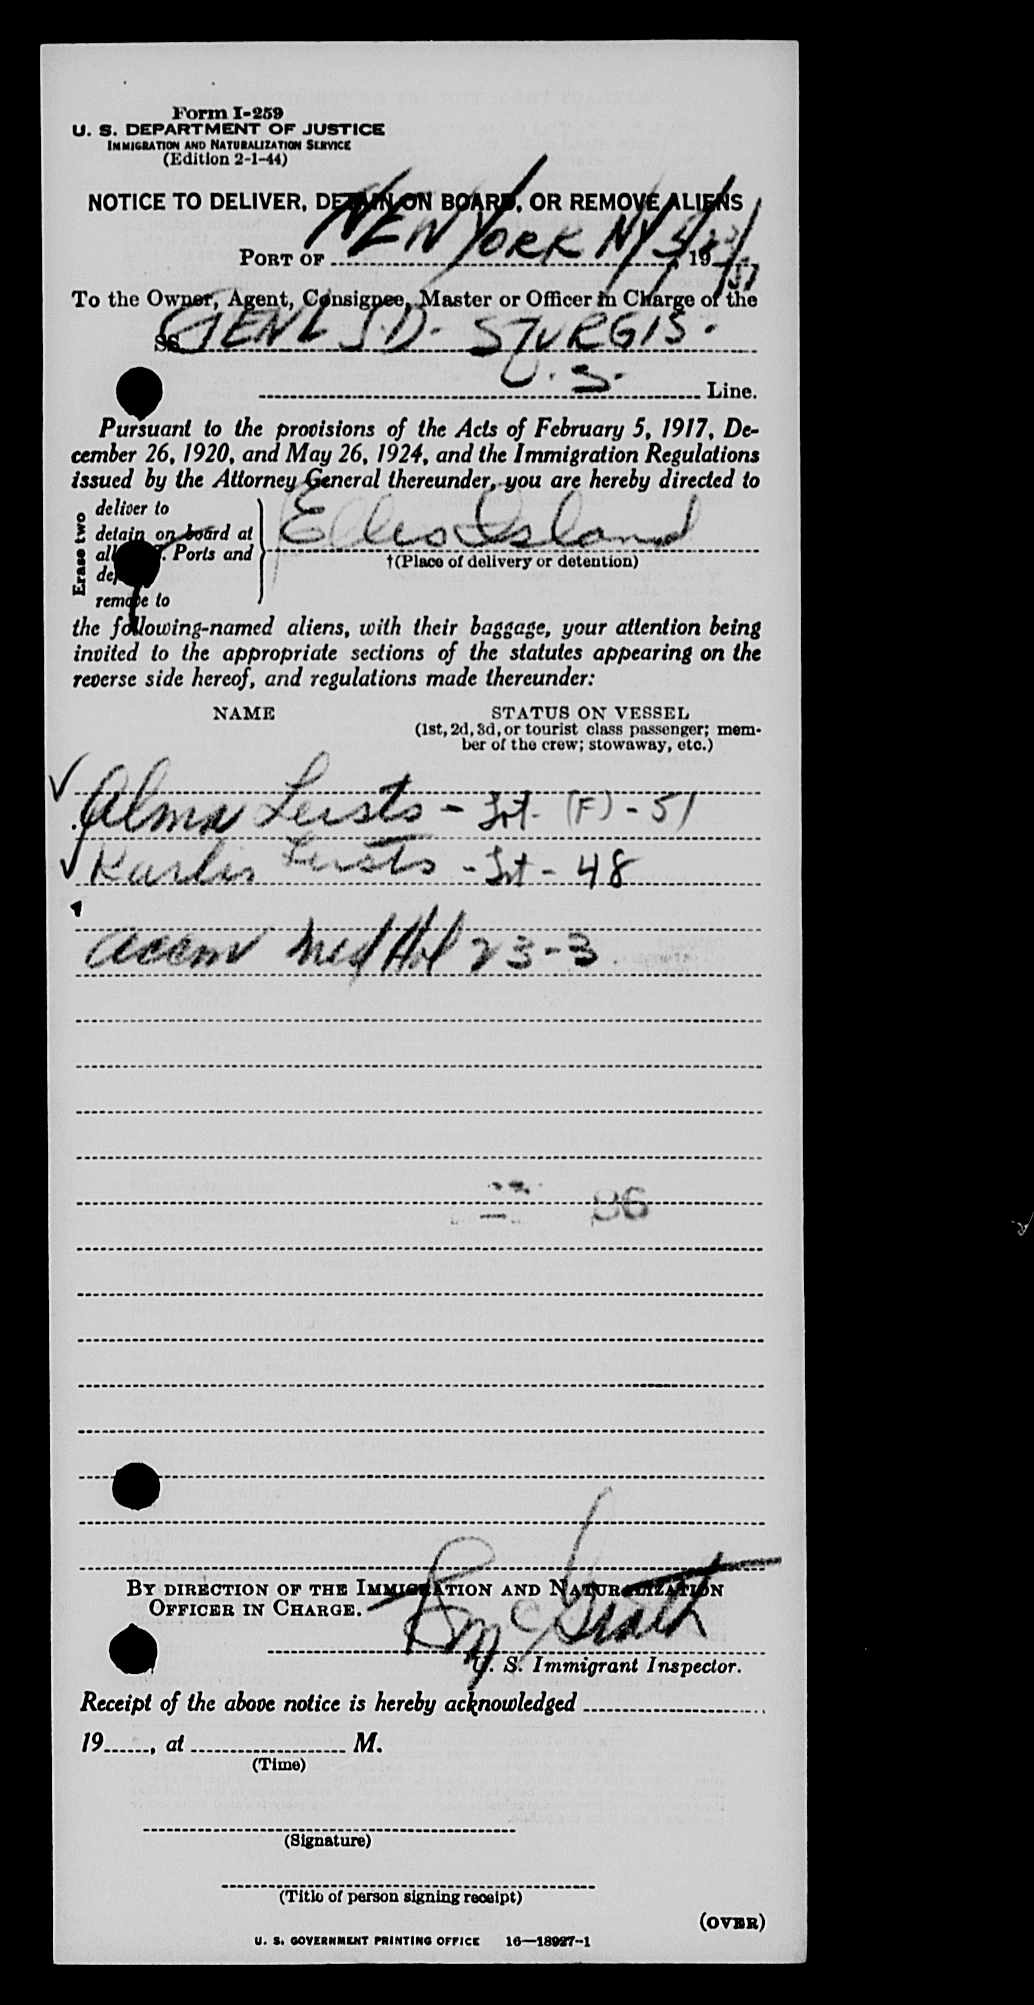 Form I-259
U. S. DEPARTMENT OF JUSTICE
IMMIGRATION AND NATURALIZATION SERVICE
(Edition 2-1-44)
NOTICE TO DELIVER, DETAIN ON BOARD, OR REMOVE ALIENS
PORT OF NEW YORK NY 19
To the Owner, Agent, Consignee, Master or Officer in Charge of the
SS GENL S.D. STURGIS.
U.S. Line.
Pursuant to the provisions of the Acts of February 5, 1917, De-
cember 26, 1920, and May 26, 1924, and the Immigration Regulations
issued by the Attorney General thereunder, you are hereby directed to
Erase two
deliver to
detain on board at
all Ports and
remove to
Ellis Island
†(Place of delivery or detention)
the following-named aliens, with their baggage, your attention being
invited to the appropriate sections of the statutes appearing on the
reverse side hereof, and regulations made thereunder:
NAME STATUS ON VESSEL
(1st, 2d, 3d, or tourist class passenger; mem-
ber of the crew; stowaway, etc.)
Alma Leists - (F) - 51
Karlis Leists - 48
23-3
86
BY DIRECTION OF THE IMMIGRATION AND NATURALIZATION
OFFICER IN CHARGE.
R McGrath
U. S. Immigrant Inspector.
Receipt of the above notice is hereby acknowledged
19, at M.
(Time)
(Signature)
(Title of person signing receipt)
(OVER)
U. S. GOVERNMENT PRINTING OFFICE 16—18927-1